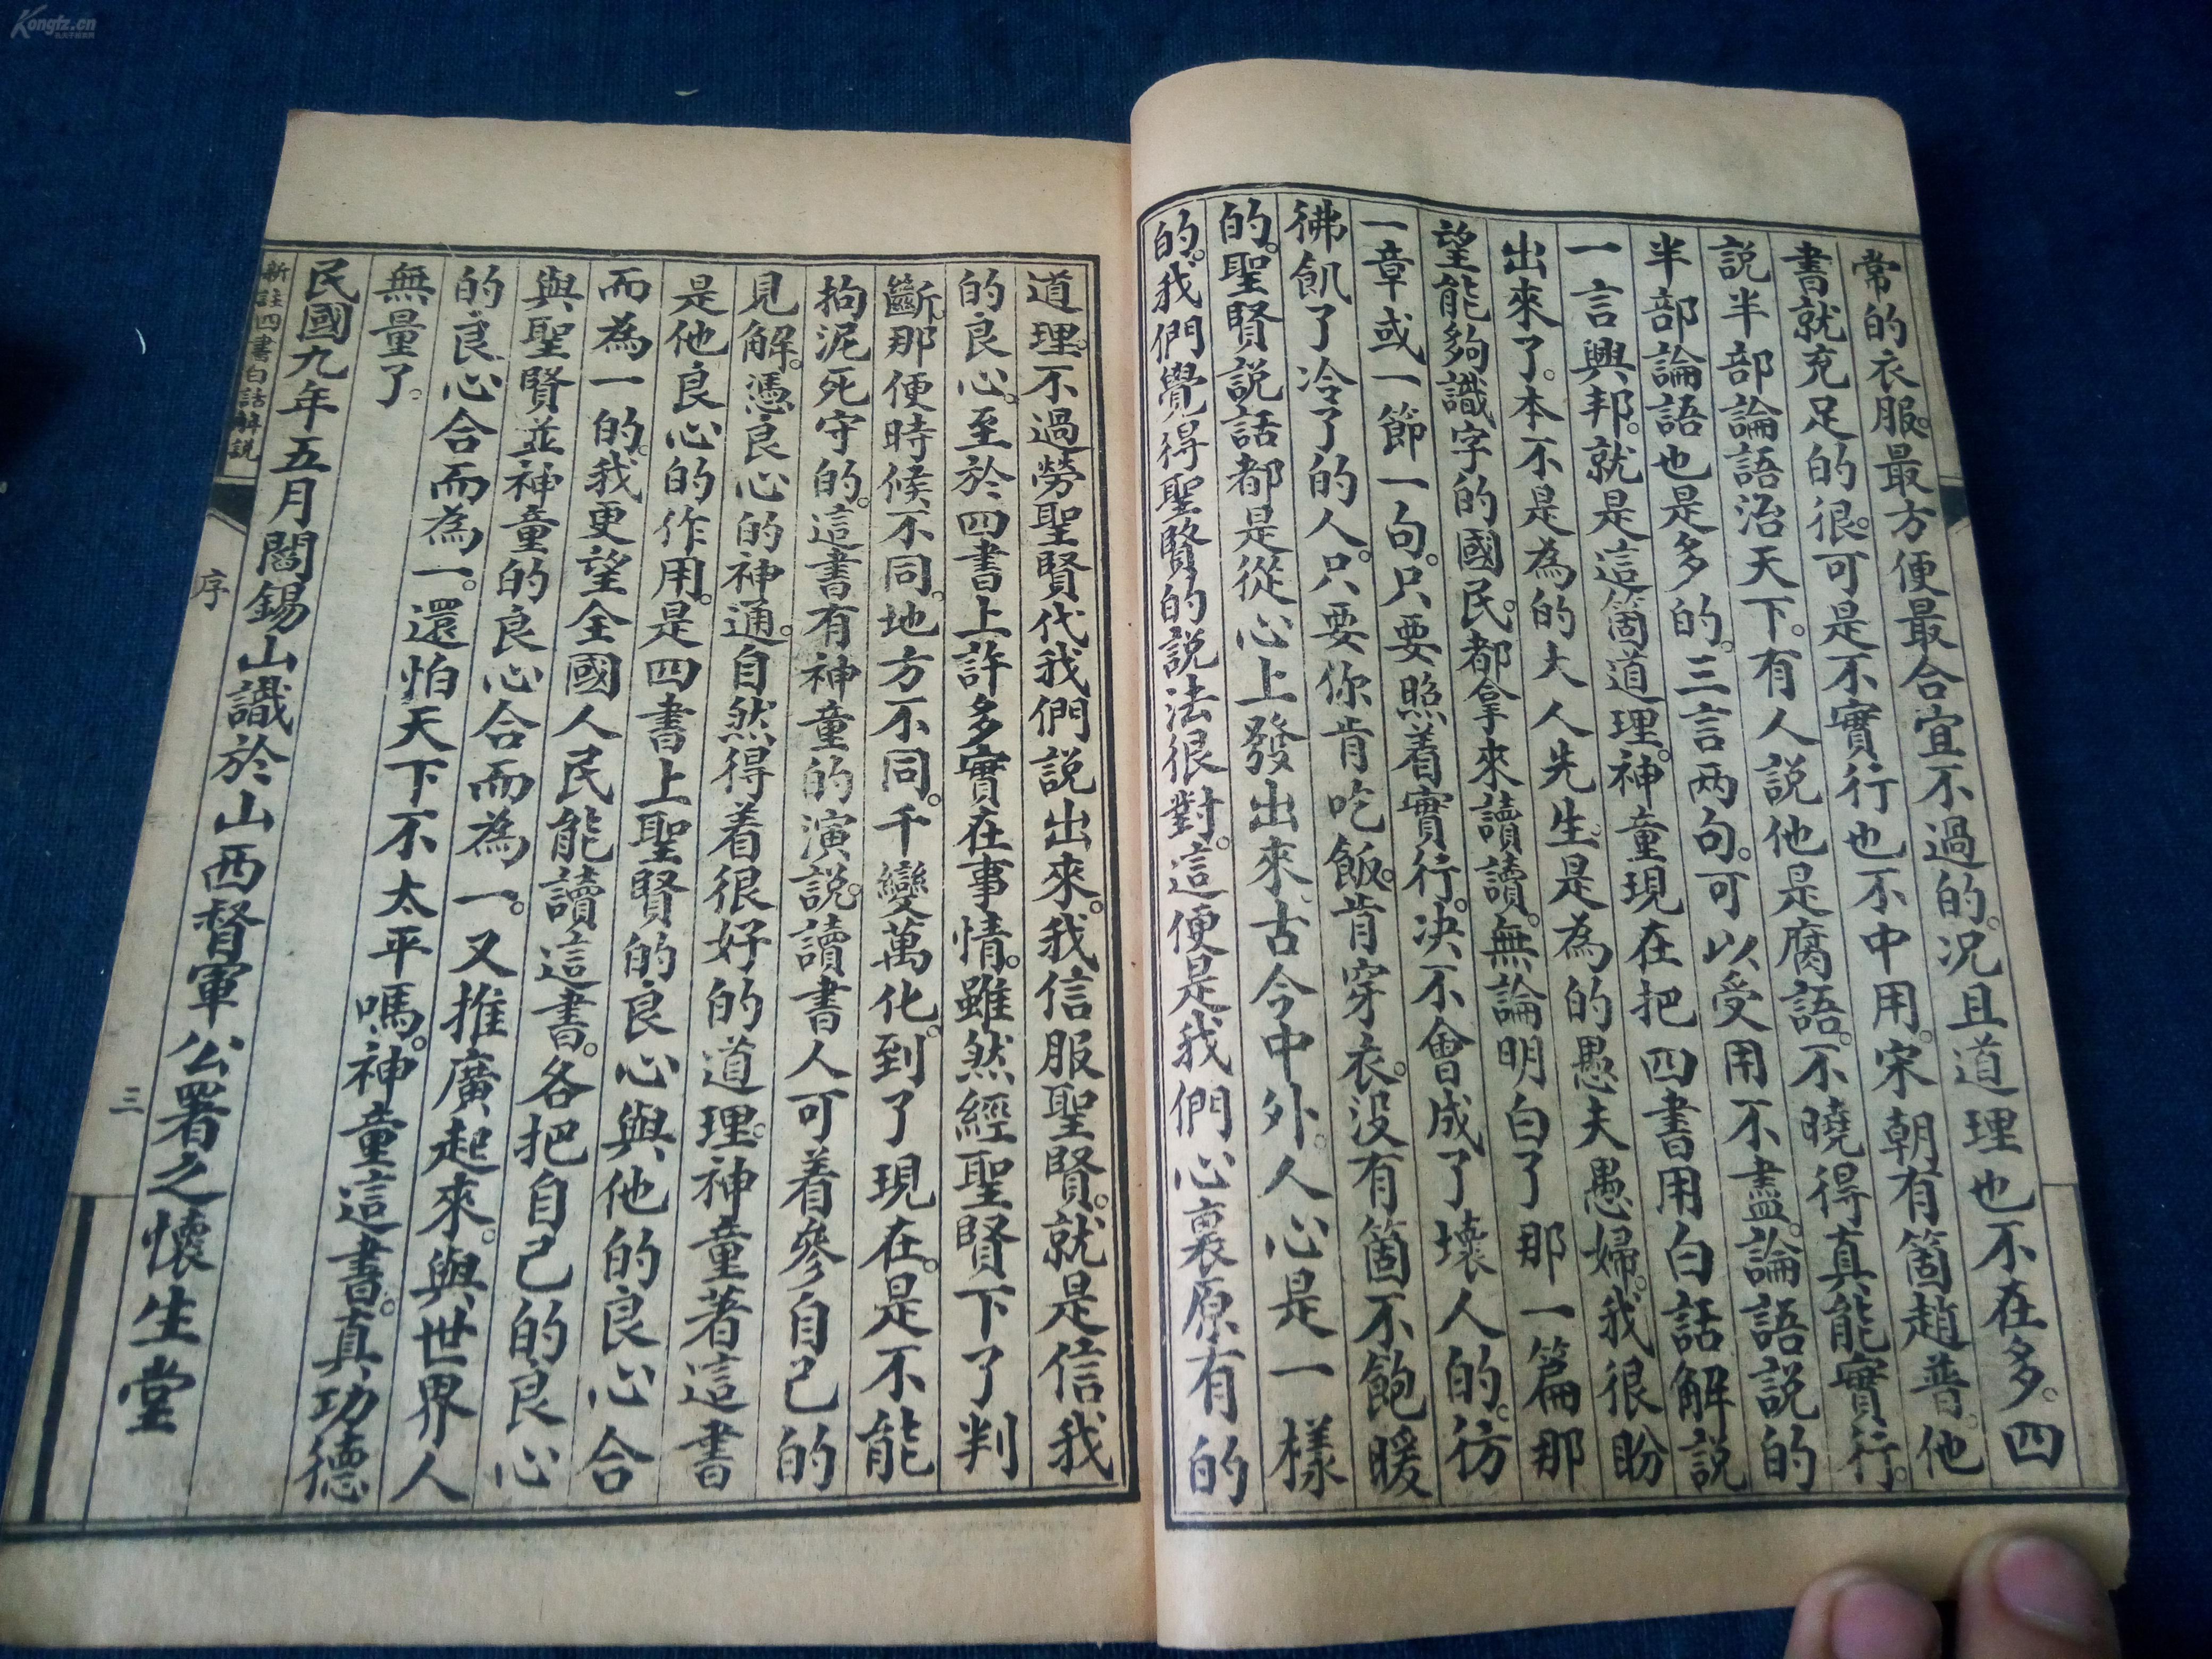 常的衣服。最方便最合宜不過的。况且道理也不在多。四
書就充足的很。可是不實行也不中用。宋朝有箇趙普。他
說半部論語治天下。有人說他是腐語。不曉得真能實行。
半部論語也是多的。三言两句。可以受用不盡。論語說的
一言興邦。就是這箇道理。神童現在把四書用白話解說
出來了。本不是為的大人先生。是為的愚夫愚婦。我很盼
望能夠識字的國民。都拿來讀讀。無論明白了那一篇那
一章或一節一句。只要照着實行。决不會成了壞人的。彷
彿飢了冷了的人。只要你肯吃飯。肯穿衣。没有箇不飽暖
的。聖賢說話都是從心上發出來。古今中外。人心是一樣
的。我們覺得聖賢的說法很對。這便是我們心裏原有的
道理。不過勞聖賢代我們說出來。我信服聖賢。就是信我
的良心。至於四書上許多實在事情。雖然經聖賢下了判
斷。那便時候不同。地方不同。千變萬化。到了現在。是不能
拘泥死守的。這書有神童的演說。讀書人可着參自己的
見解。憑良心的神通。自然得着很好的道理。神童著這書
是他良心的作用。是四書上聖賢的良心與他的良心合
而為一的。我更望全國人民能讀這書。各把自己的良心
與聖賢並神童的良心合而為一。又推廣起來。與世界人
的良心合而為一。還怕天下不太平嗎。神童這書。真功德
無量了。
民國九年五月閻錫山識於山西督軍公署之懷生堂
新註四書白話解說
序
三
Kongfz.cn